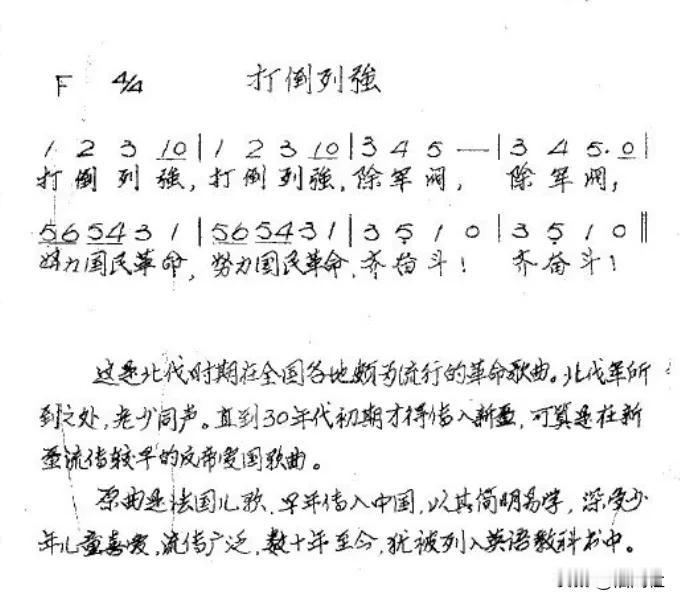 F 4/4 打倒列強
1 2 3 10 | 1 2 3 10 | 3 4 5 — | 3 4 5· 0 |
打倒列強，打倒列強，除军阀，除军阀；
5654 3 1 | 5654 3 1 | 3 5̣ 1 0 | 3 5̣ 1 0 ‖
努力国民革命，努力国民革命，齐奋斗！齐奋斗！
这是北伐时期在全国各地颇为流行的革命歌曲。北伐军所
到之处，老少同声。直到30年代初期才得传入新\u200b，可算是在新
流传较早的反帝爱国歌曲。
原曲是法国儿歌，早年传入中国，以其简明易学，深受少
年儿童喜爱，流传广泛，数十年至今，犹被列入英语教科书中。